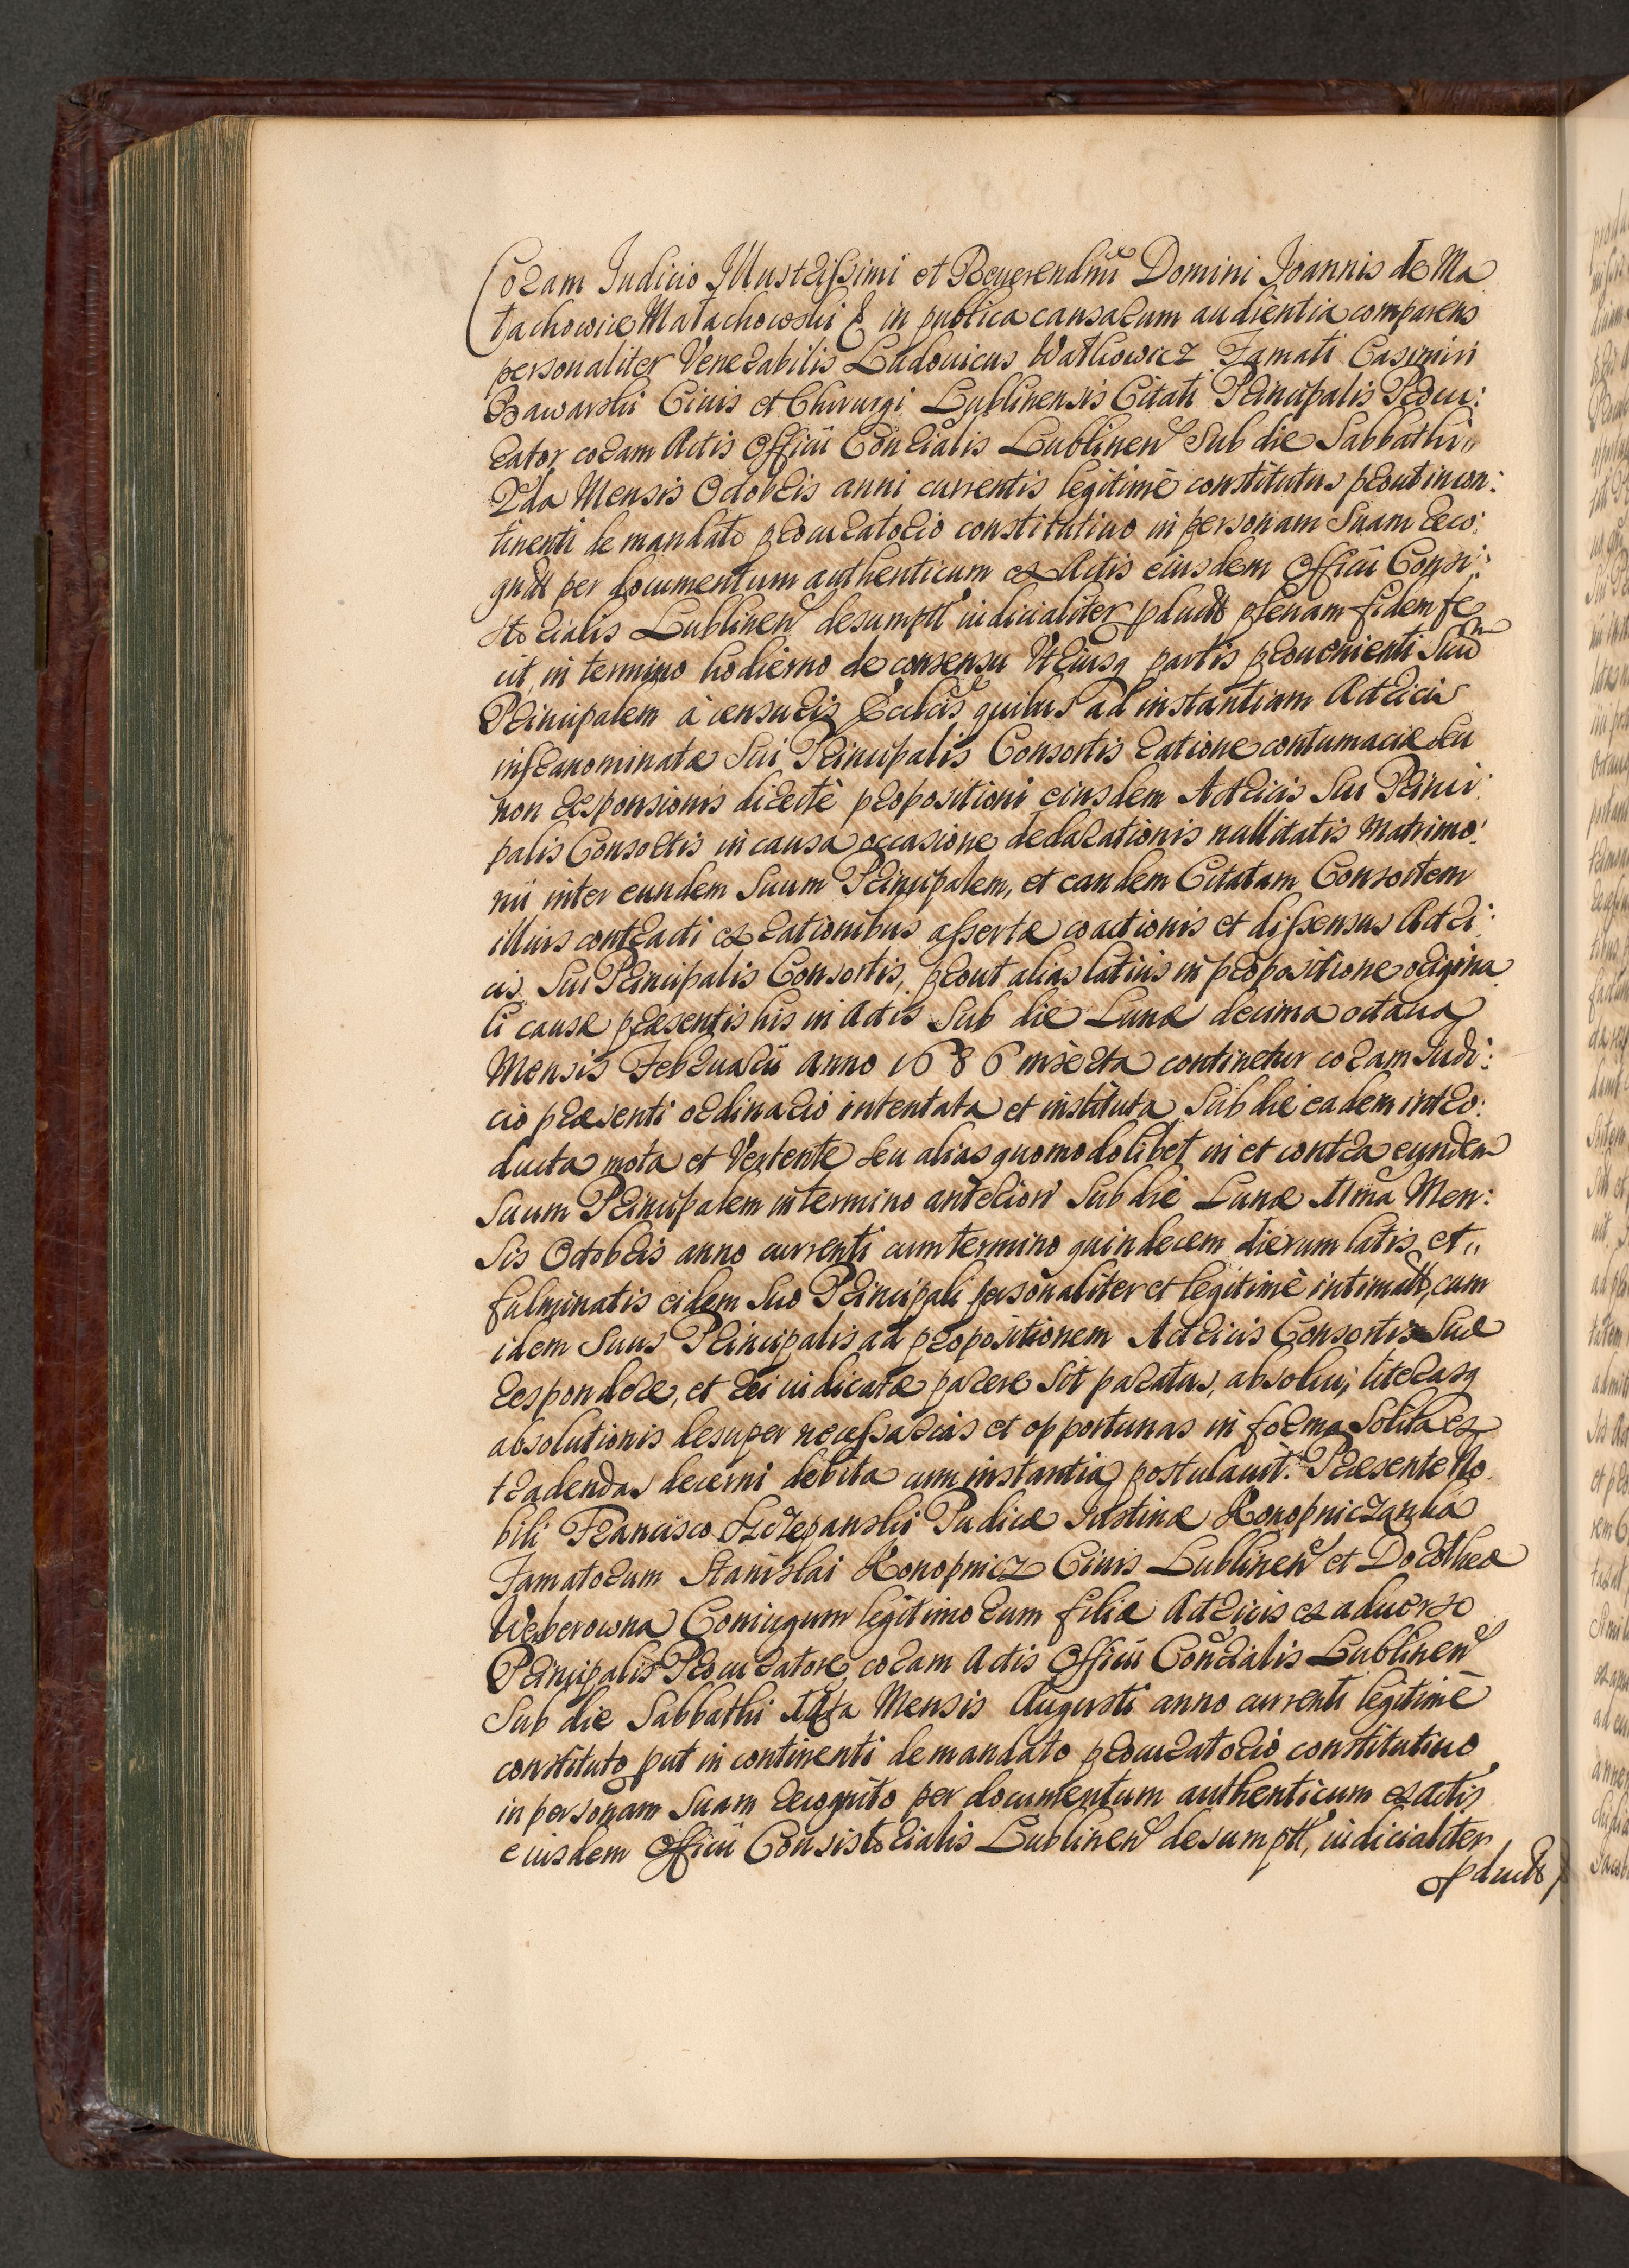 Coram Iudicio Illustrissimi et Reverendmi Domini Ioannis de Ma
łachowice Małachowski & in publica causarum audientia comparens
personaliter Venerabilis Ludouicus Wathowicz Famati Casimiri
Bawarski Ciuis et Chirurgi Lublinensis Citati Principalis Procu:
rator coram Actis Officii Conrialis Lublinen Sub die Sabbathi"
2da Mensis Octobris anni currentis legitimè constitutus prout in con:
tinenti de mandato procuratorio constitutiuo in personam Suam reco:
gnitt per documentum authenticum ex Actis eiusdem Officii Consi:
storialis Lublinen desumptt iudicialiter pductt plenam fidem fe
cit, in termino hodierno de consensu Vtriusq partis prouenienti Suum
Principalem à censuris Ecclcis quibus ad instantiam Actricis
infranominatæ Sui Principalis Consortis ratione contumaciæ seu
non responsionis directè propositioni eiusdem Actricis Sui Princi:
palis Consortis in causa occasione declarationis nullitatis Matrimo:
nii inter eundem Suum Principalem, et eandem Citatam Consortem
illius contracti ex rationibus assertæ coactionis et dissensus Actri:
cis Sui Principalis Consortis, prout alias latius in propositione origina
li causæ præsentis his in Actis Sub die Lunæ decima octaua
Mensis Februarii Anno 1686 inserta continetur coram Iudi:
cio præsenti ordinario intentata et instituta Sub die eadem intro:
ducta mota et Vertente seu alias quomodolibet in et contra eundem
Suum Principalem in termino anteriori Sub die Lunæ 11ma Men:
sis Octobris anno currenti cum termino quindecem dierum latis et"
fulminatis eidem Suo Principali personaliter et legitimè intimatt, cum
idem Suus Principalis ad propositionem Actricis Consortis Suæ
respondere, et rei iudicatæ parere sit paratus, absolui, literasq
absolutionis desuper necessarias et opportunas in forma Solita ex
tradendas decerni debita cum instantia postulauit. Præsente No
bili Francisco Szczepanski Pudicæ Iustinæ Konopniczanka
Famatorum Stanislai Konopnicz Ciuis Lublinen et Dorotheæ
Weberowna Coniugum legitimorum filiæ Actricis ex aduerso
Principalis Procuratore coram Actis Officii Conrialis Lublinen
Sub die Sabbathi Mensis Augusti anno currenti legitimè
constituto put in continenti de mandato procuratorio constitutiuo
in personam Suam recognito per documentum authenticum ex Actis
eiusdem Officii Consistorialis Lublinen desumptt, iudicialiter
pductt,